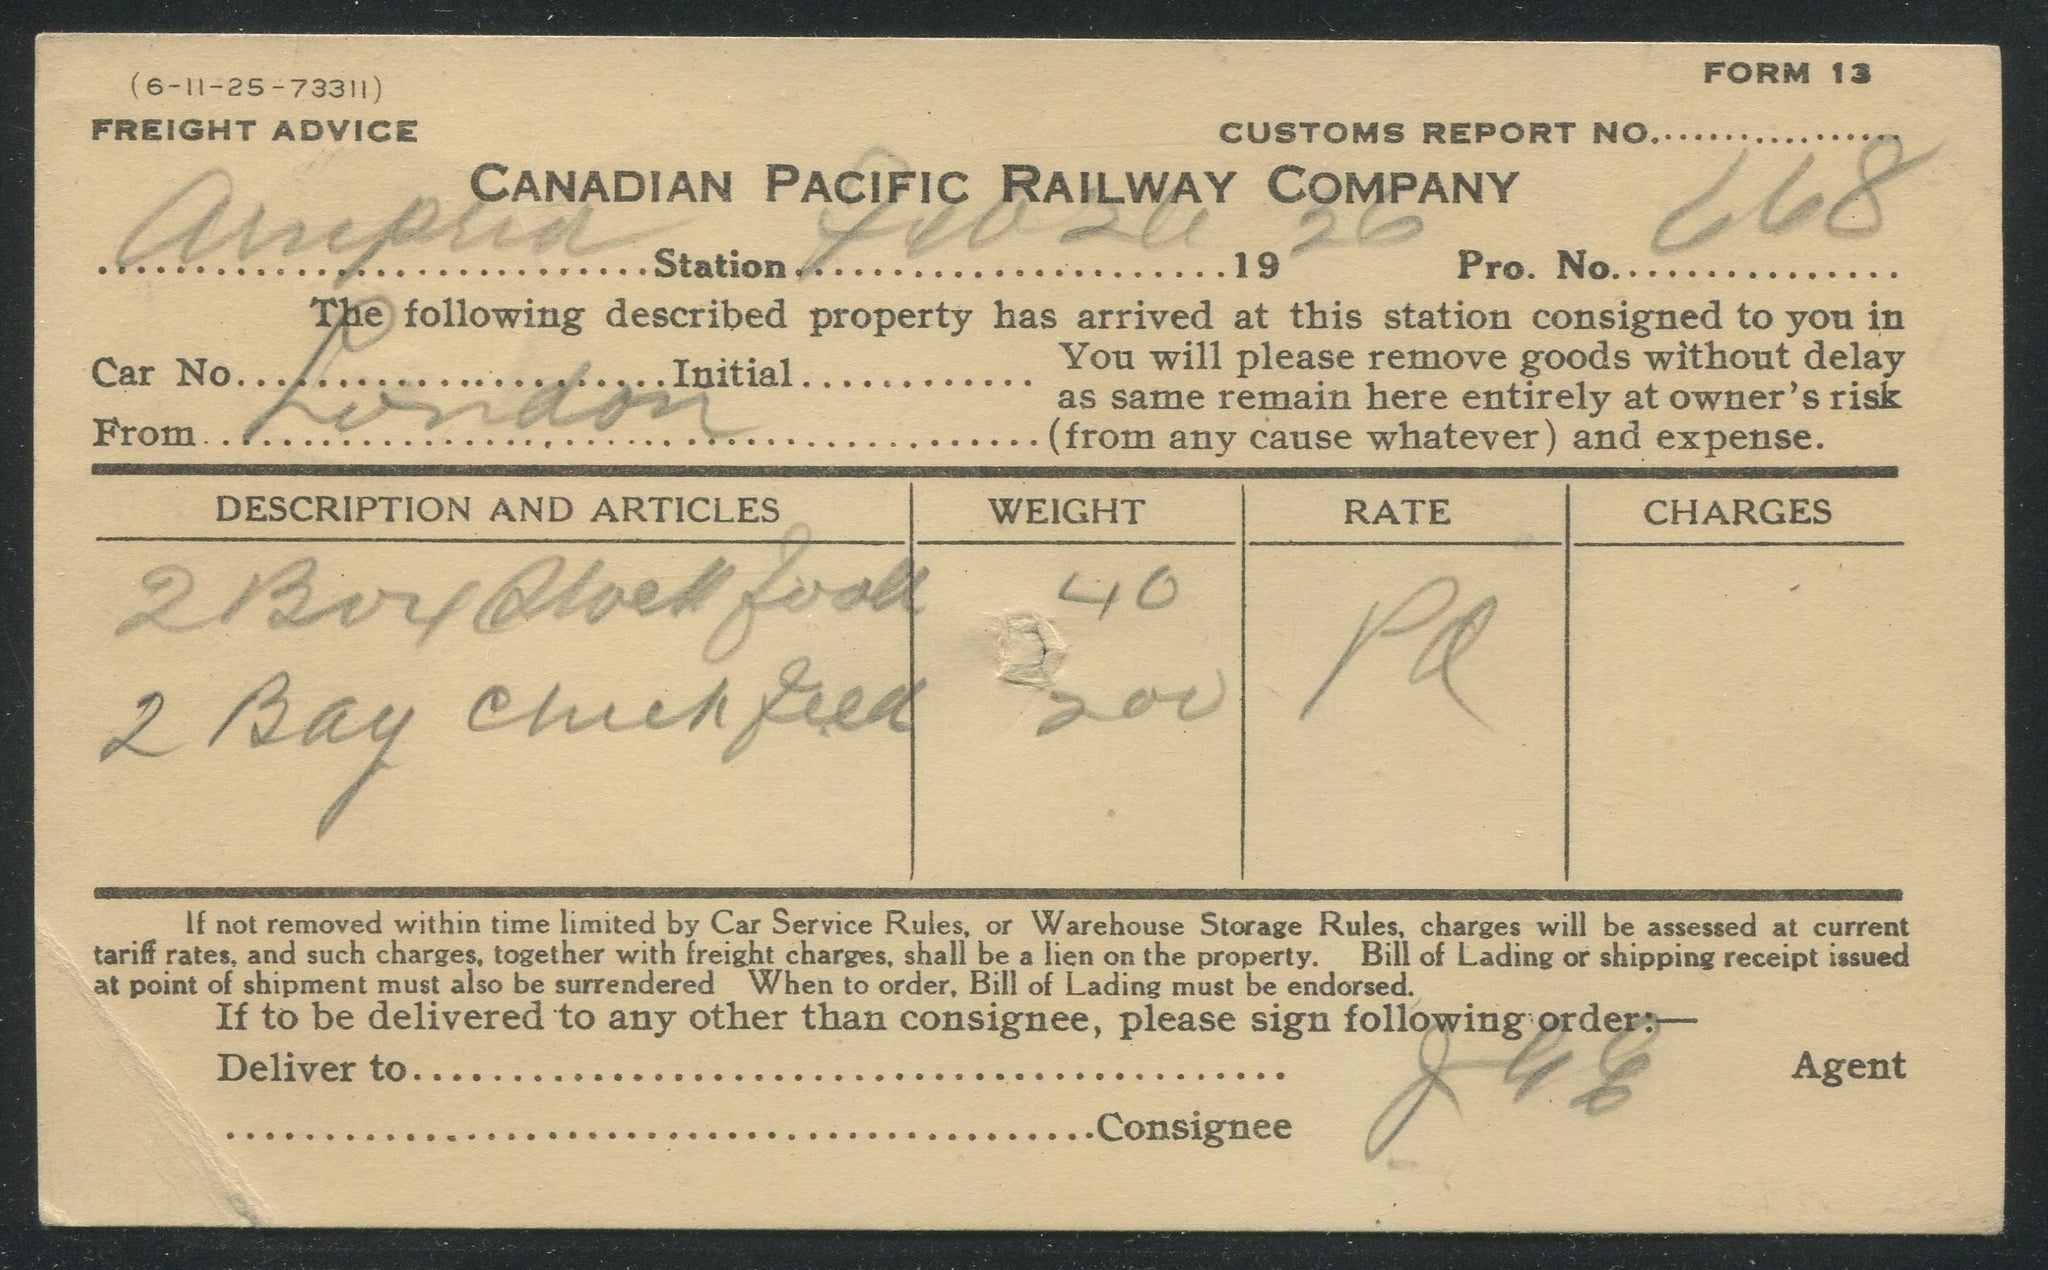 (6-11-25-73311)
FORM 13
FREIGHT ADVICE
CUSTOMS REPORT NO..................
CANADIAN PACIFIC RAILWAY COMPANY
Arnprior Station Feb 26 1926 Pro. No. 668
The following described property has arrived at this station consigned to you in
Car No..........................Initial............. You will please remove goods without delay
as same remain here entirely at owner's risk
From London (from any cause whatever) and expense.
DESCRIPTION AND ARTICLES WEIGHT RATE CHARGES
2 Box Stock food 40 Pd
2 Bag Chick feed 200
If not removed within time limited by Car Service Rules, or Warehouse Storage Rules, charges will be assessed at current
tariff rates, and such charges, together with freight charges, shall be a lien on the property. Bill of Lading or shipping receipt issued
at point of shipment must also be surrendered When to order, Bill of Lading must be endorsed.
If to be delivered to any other than consignee, please sign following order:—
Deliver to............................................. Agent
.............................................Consignee